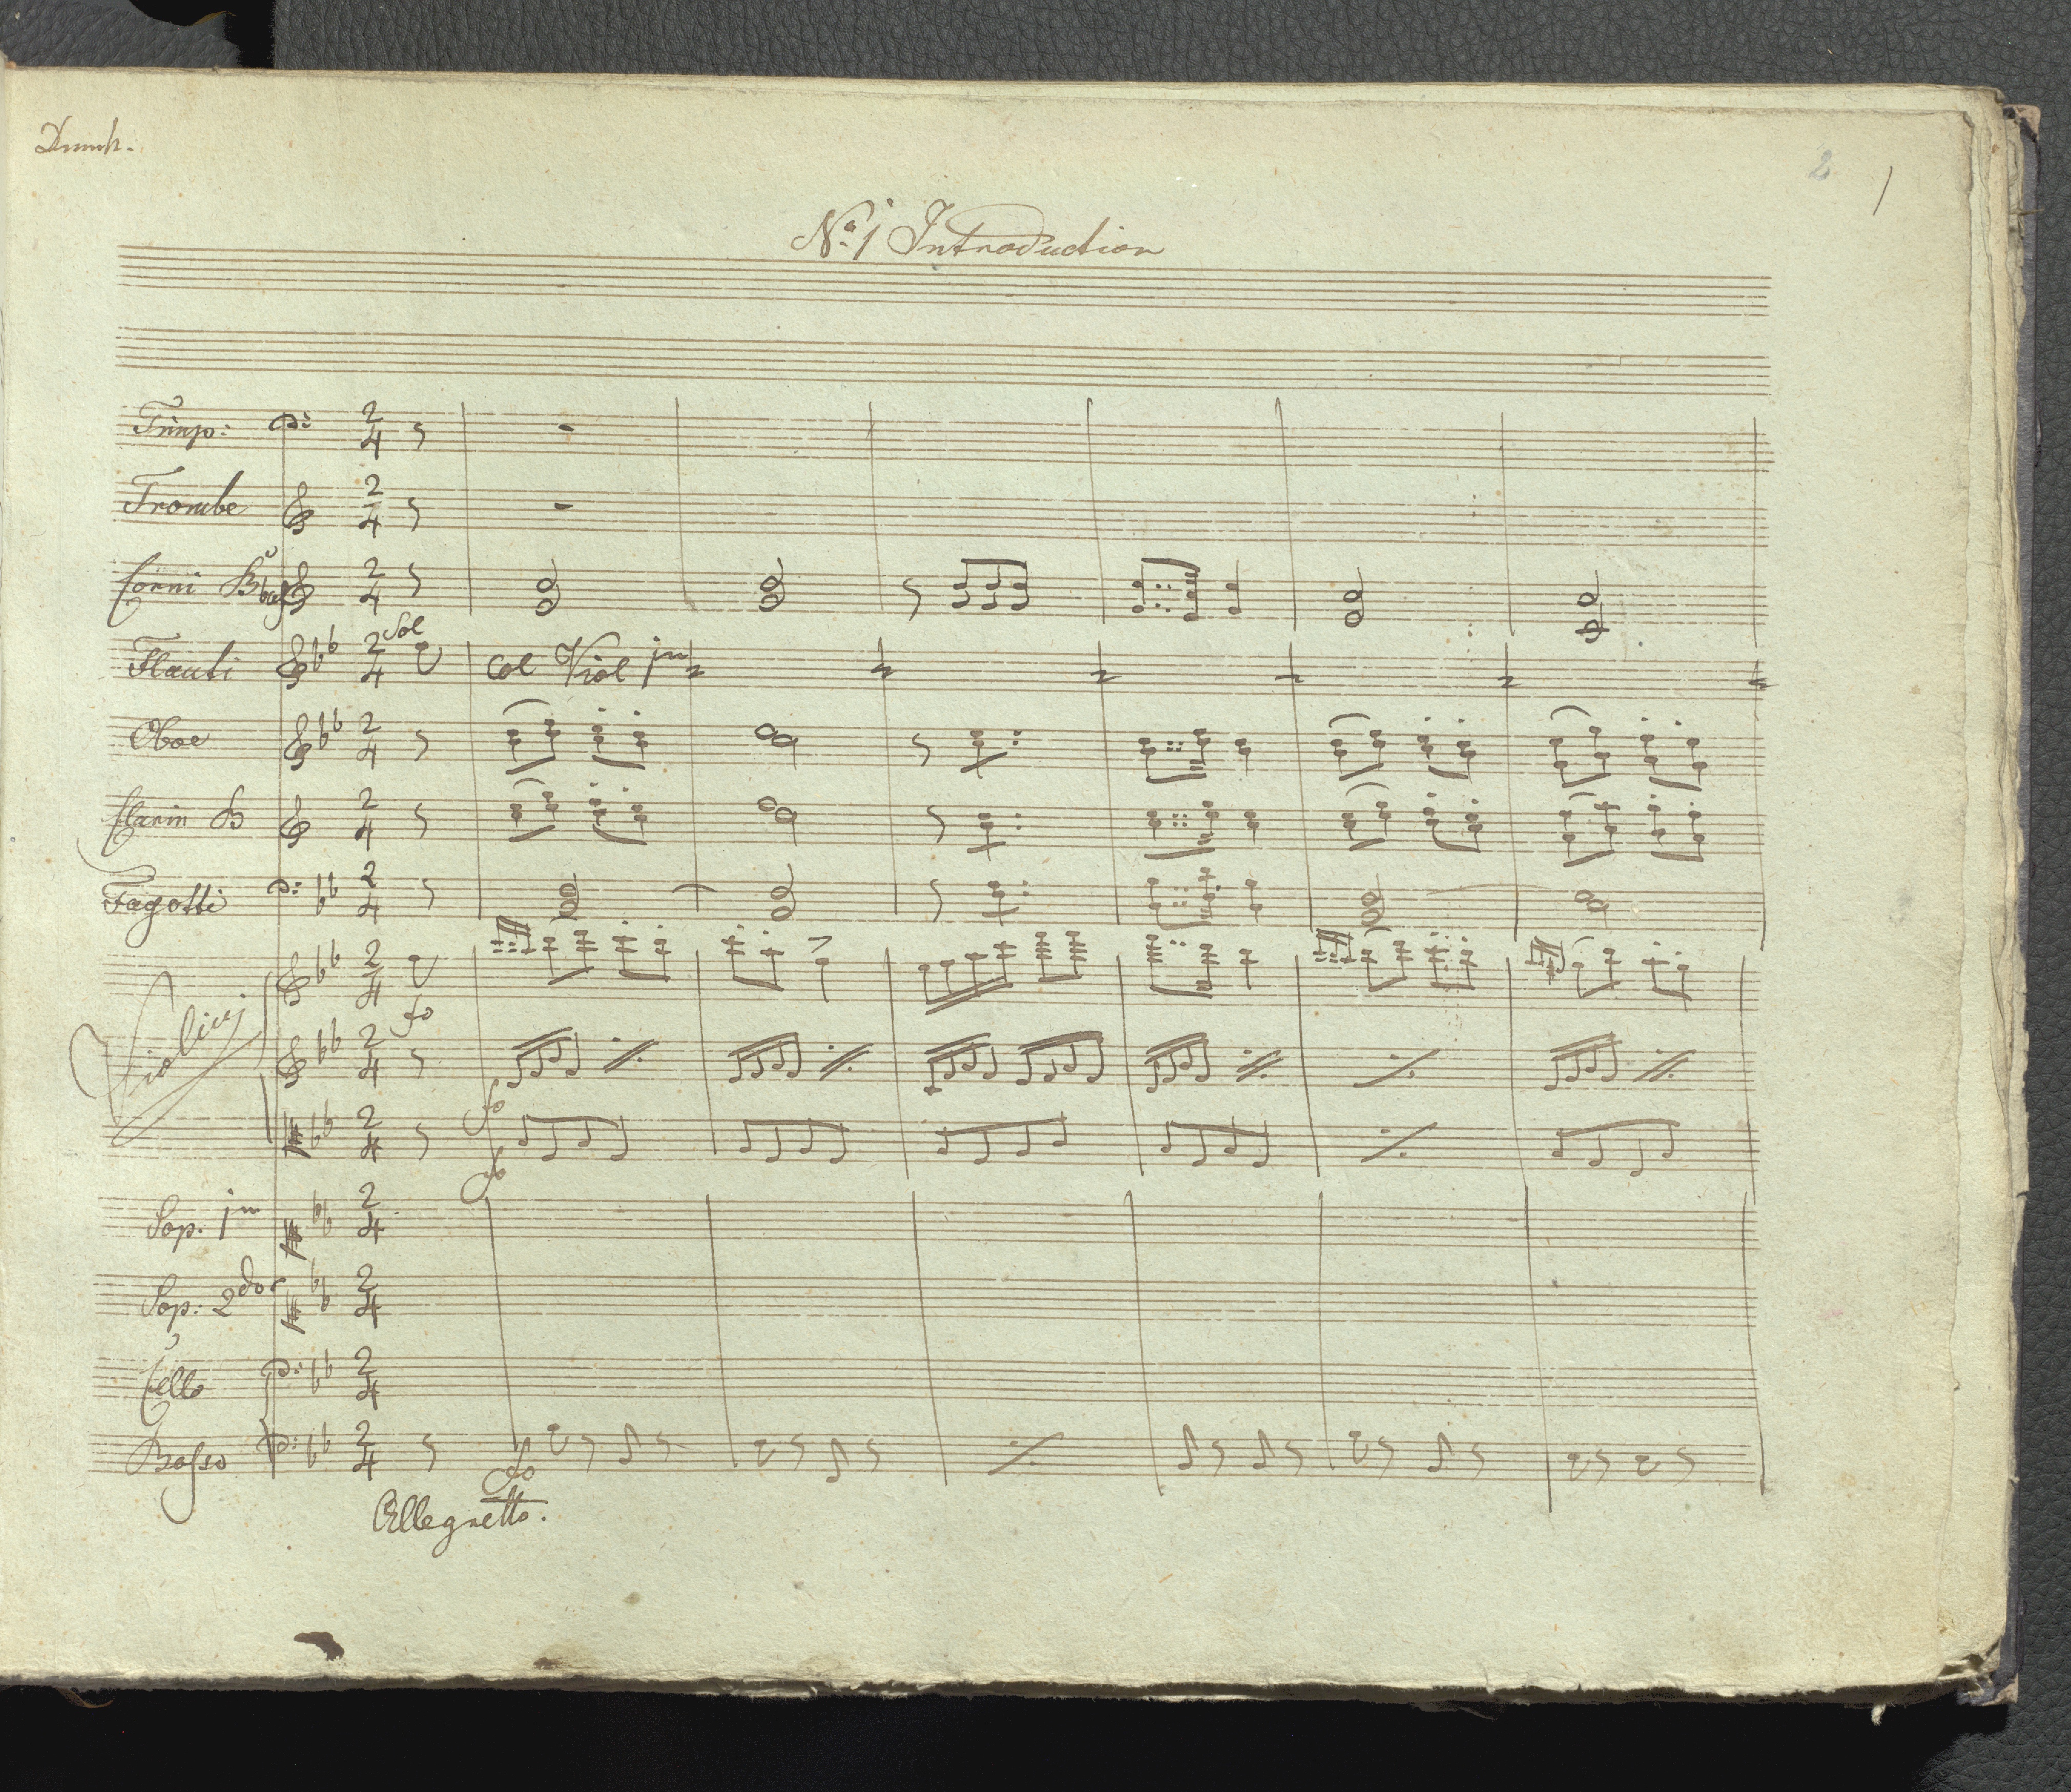 2 1
No. 1 Introduction
Timp:
Trombe
Corni B
Sol
Flauti Col Viol 1mo
Oboe
Clarin B
Fagotti
Violini
fo
fo
fo
Sop. 1mo
Sop. 2do
Cello
Basso
fo
Allegretto.